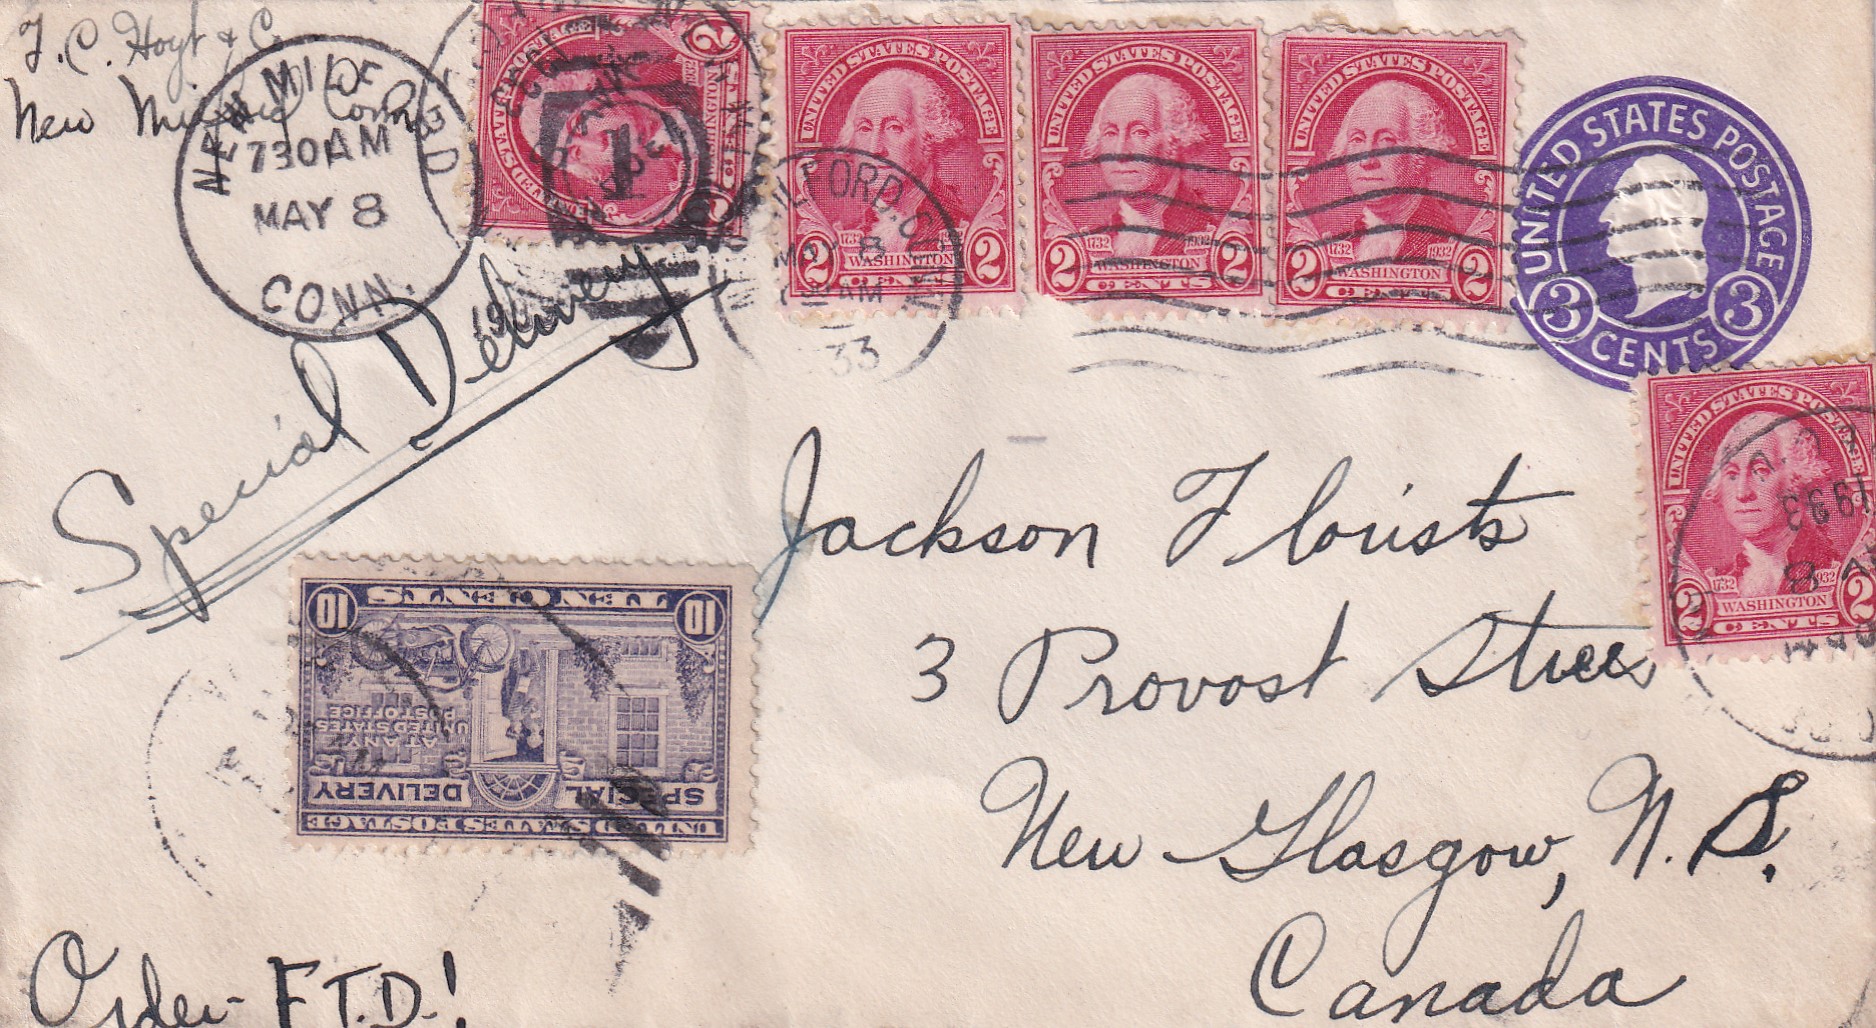 T. C. Hoyt & C
New Milford Conn
NEW MILFORD
730AM
MAY 8
CONN.
UNITED STATES POSTAGE
2 2
WASHINGTON
UNITED STATES POSTAGE
2 1732 1932 2
WASHINGTON
CENTS
UNITED STATES POSTAGE
2 1732 1932 2
WASHINGTON
CENTS
UNITED STATES POSTAGE
2 1732 1932 2
WASHINGTON
CENTS
UNITED STATES POSTAGE
3 CENTS 3
MILFORD, CONN
MAY 8
AM
33
Special Delivery
UNITED STATES POSTAGE
2 1732 1932 2
WASHINGTON
CENTS
1933
Jackson Florists
3 Provost Street
New Glasgow, N. S.
Canada
UNITED STATES POSTAGE
SPECIAL DELIVERY
AT ANY
UNITED STATES
POST OFFICE
10 TEN CENTS 10
Order F.T.D.!